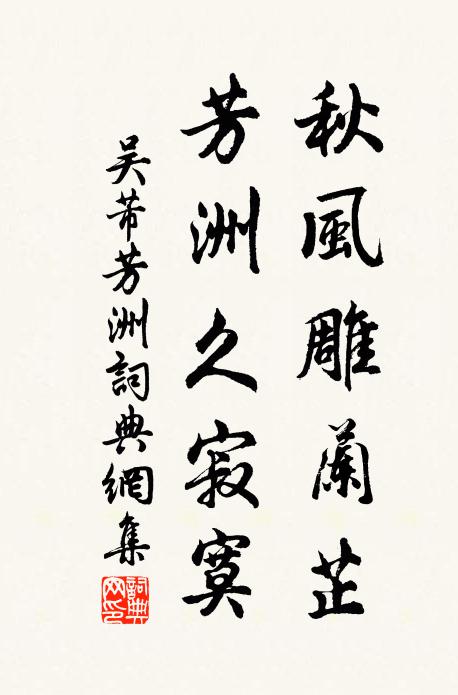 秋風雕蘭芷
芳洲久寂寞
吴芾芳洲詞典網集
詞典
网印